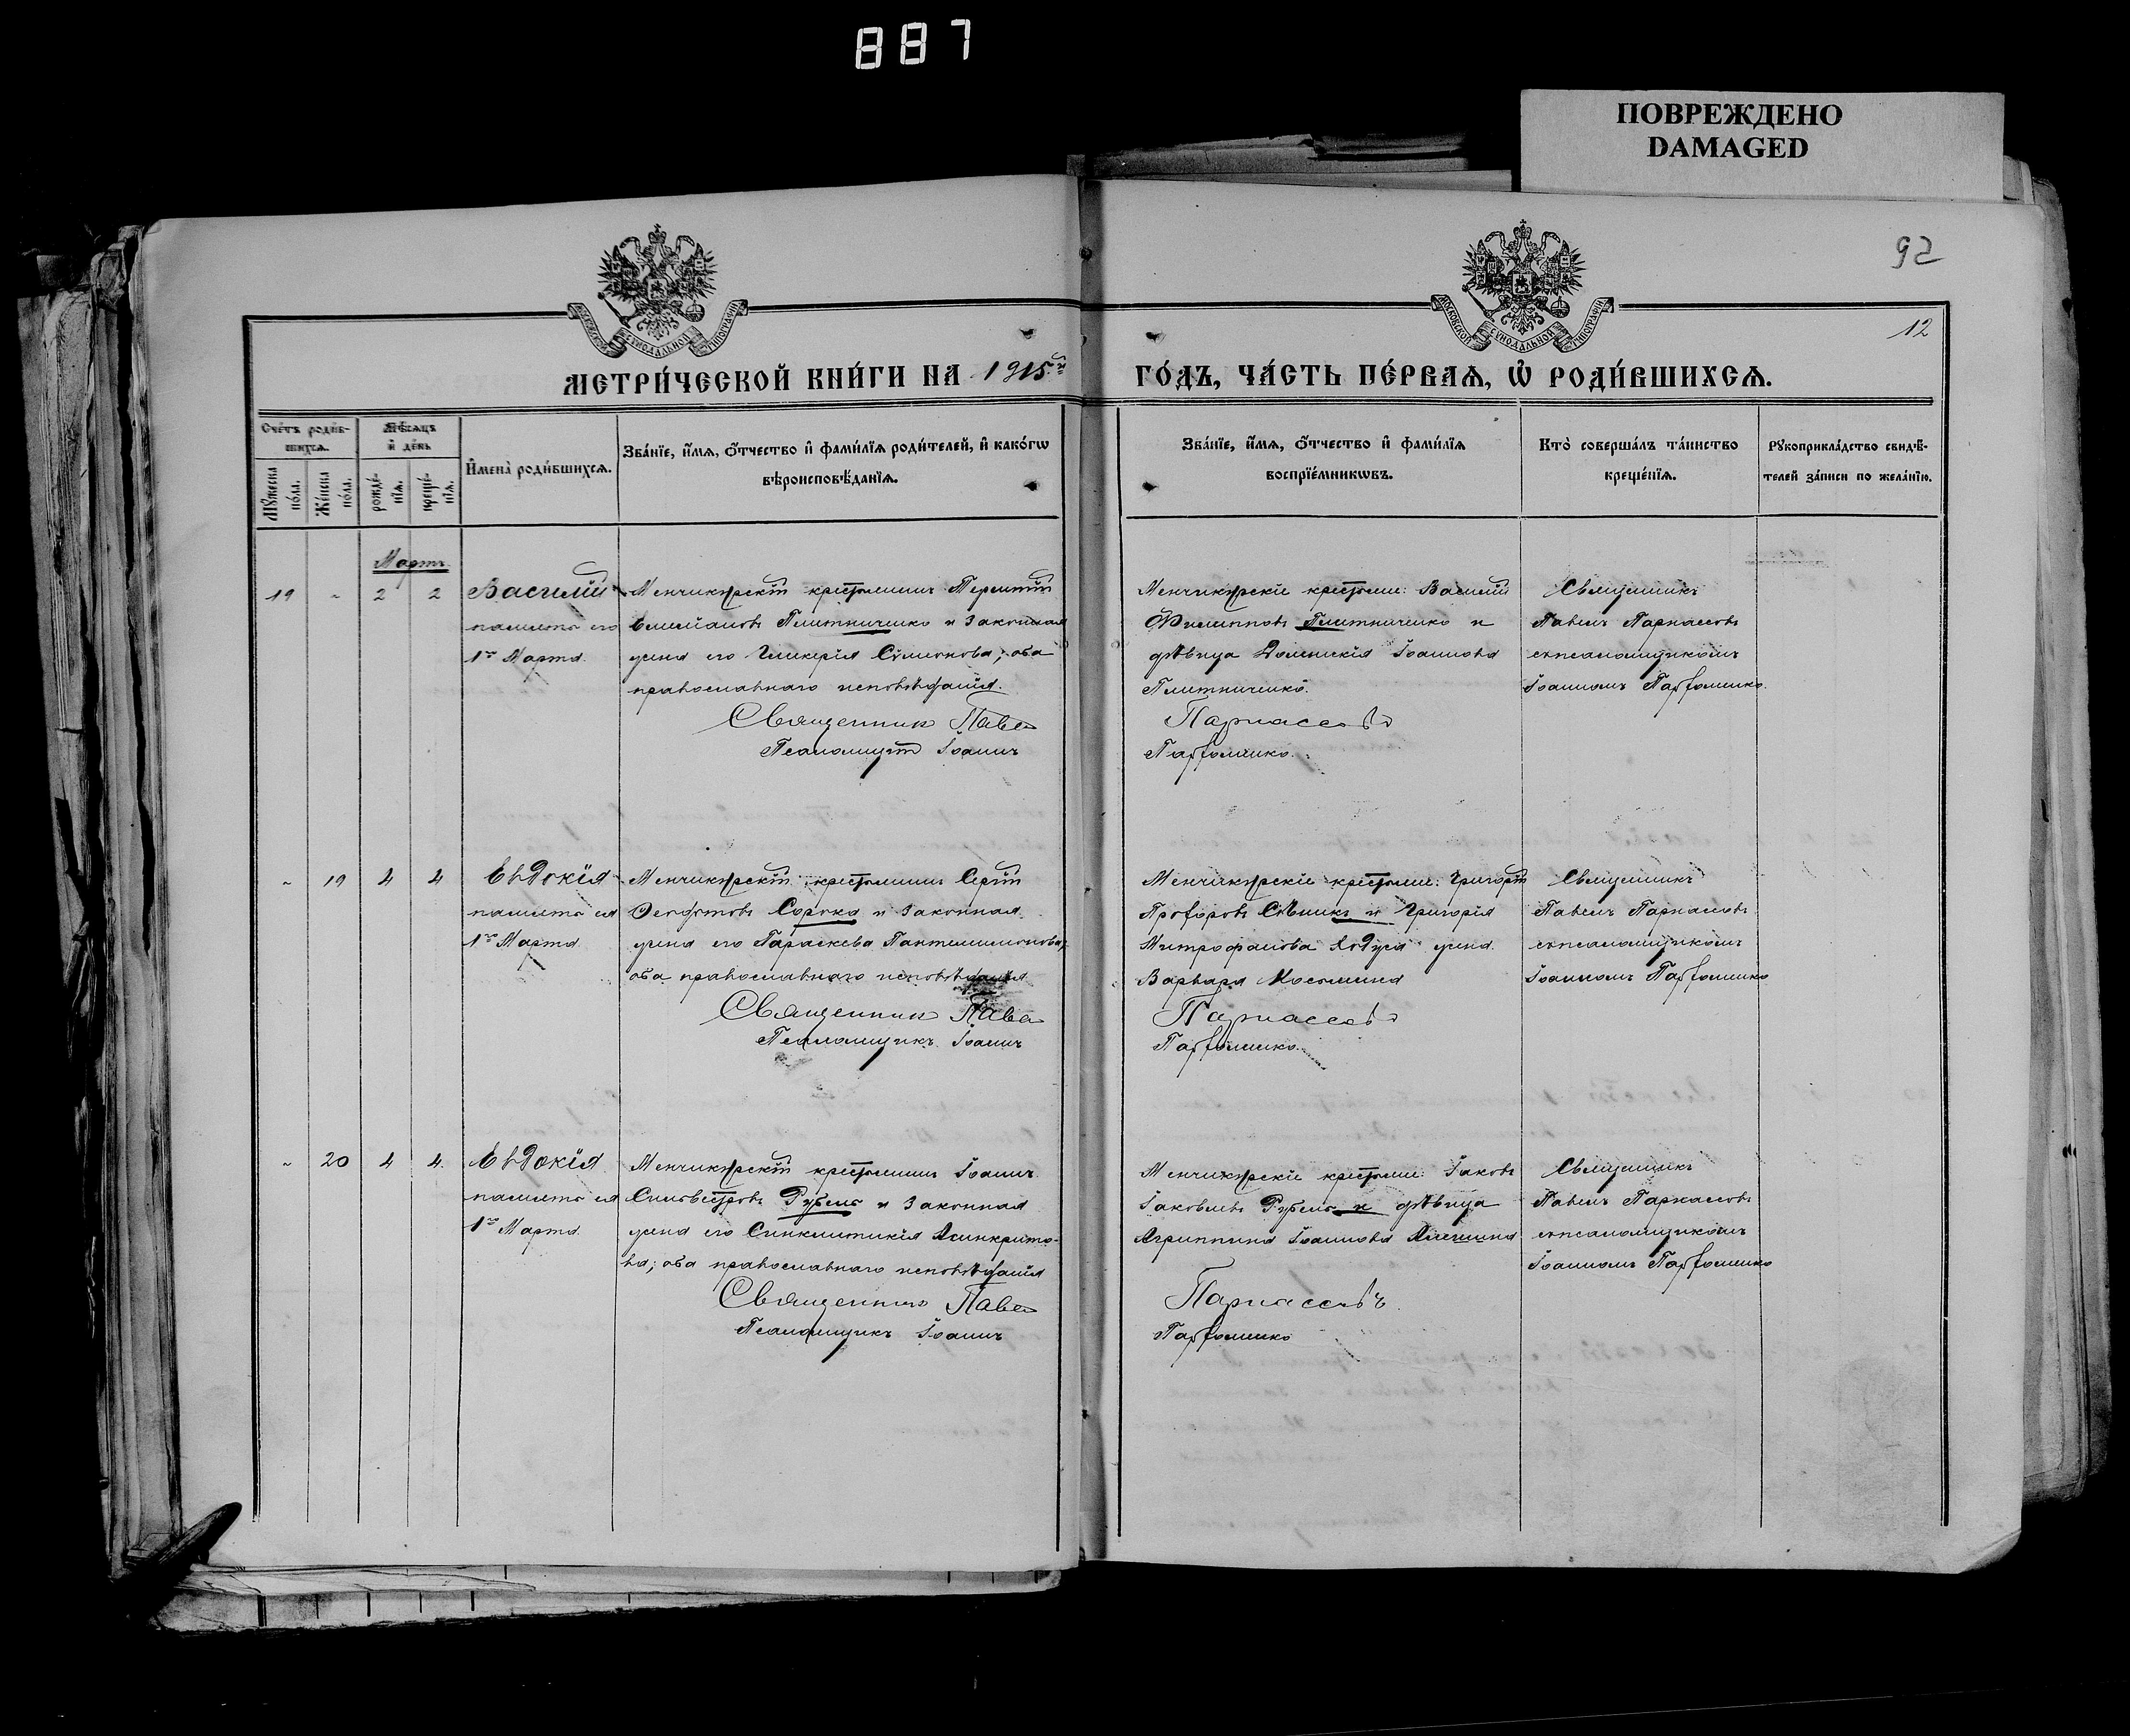 887
ПОВРЕЖДЕНО
DAMAGED
92
12
МОСКОВСКОЙ СѴНОДАЛЬНОЙ ТИПОГРАФІИ
МОСКОВСКОЙ СѴНОДАЛЬНОЙ ТИПОГРАФІИ
МЕТРИ́ЧЕСКОЙ КНИ́ГИ НА 1915й ГО́ДЪ, ЧА́СТЬ ПЕ́РВАѦ, Ѽ РОДИ́ВШИХСѦ.
Сче́тъ роди́в-
шихсѧ.
Мѣ́сѧцъ
и҆ де́нь
Мꙋ́жеска
по́ла.
Же́нска
по́ла.
рожде́-
нїѧ.
креще́-
нїѧ.
И҆мена̀ роди́вшихсѧ.
Зва́нїе, и҆́мѧ, ѻ҆́тчество и҆ фами́лїѧ роди́телей, и҆ како́гѡ
вѣроисповѣ́данїѧ.
Зва́нїе, и҆́мѧ, ѻ҆́тчество и҆ фами́лїѧ
воспрїе́мникѡвъ.
Кто̀ соверша́лъ та́инство
креще́нїѧ.
Рꙋкоприкла́дство свидѣ́-
телей за́писи по жела́нїю.
Мартъ
19 " 2 2 Василій
память его
1го Марта
Менчикурскій крестьянинъ Терентій
Емиліановъ Плитниченко и законная
жена его Гликерія Симонова; оба
православнаго исповѣданія.
Священник Павел
Псаломщик Іоаннъ
Менчикурскіе крестьяне: Василій
Филипповъ Плитниченко и
дѣвица Домникія Іоаннова
Плитниченко.
Парнассовъ
Парфоменко.
Священникъ
Павелъ Парнассовъ
съ псаломщикомъ
Іоанномъ Парфоменко.
" 19 4 4 Евдокія
память ея
1го Марта
Менчикурскій крестьянинъ Сергій
Ѳеодотовъ Сорока и законная
жена его Параскева Пантелеимонова;
оба православнаго исповѣданія
Священник Павел
Псаломщикъ Іоаннъ
Менчикурскіе крестьяне: Григорій
Прохоровъ Сѣникъ и Григорія
Митрофанова Ходуся жена
Варвара Косьмина
Парнассовъ
Парфоменко.
Священникъ
Павелъ Парнассовъ
съ псаломщикомъ
Іоанномъ Парфоменко
" 20 4 4. Евдокія
память ея
1го Марта
Менчикурскій крестьянинъ Іоаннъ
Силовестровъ Рубель и законная
жена его Синклитикія Асинкрито-
ва; оба православнаго исповѣданія
Священник Павел
Псаломщикъ Іоаннъ
Менчикурскіе крестьяне: Іаковъ
Іаковлевъ Рубель и дѣвица
Агриппина Іоаннова
Парнассовъ
Парфоменко
Священникъ
Павелъ Парнассовъ
съ псаломщикомъ
Іоанномъ Парфоменко